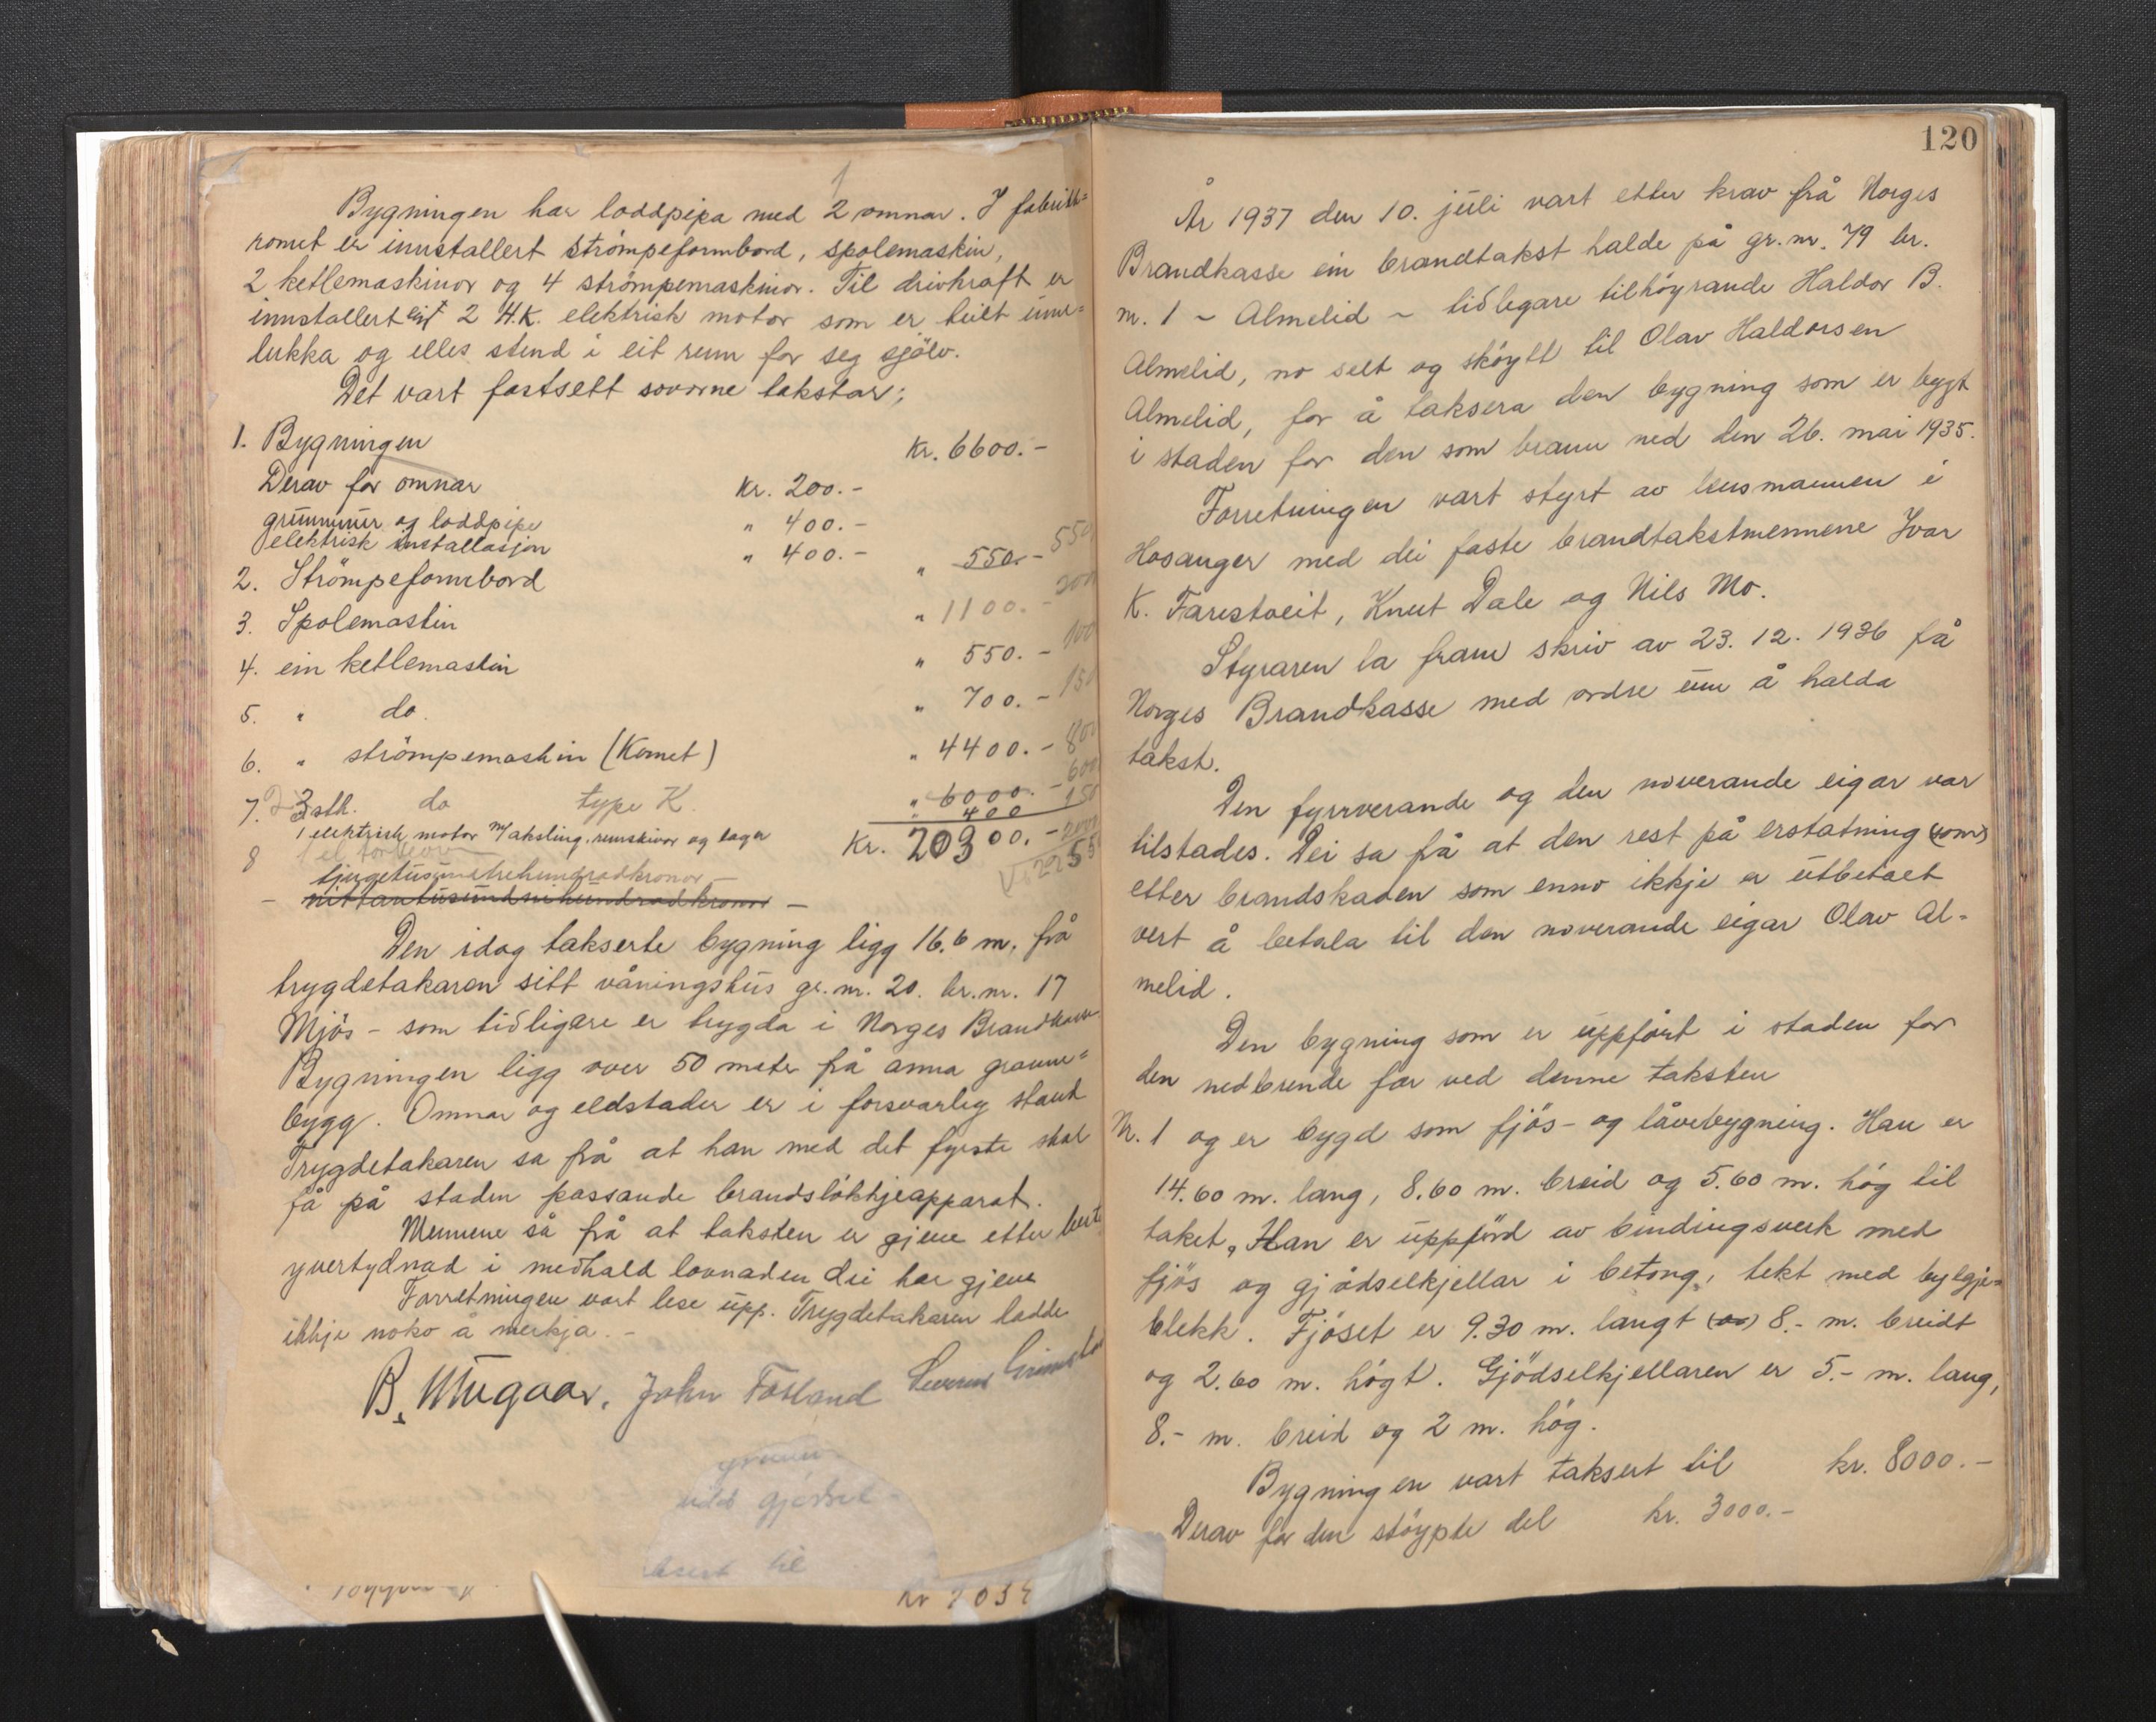 Bygningen har loddpipa med 2 omnar. I fabrikk=
romet er innstallert strømpeformbord, spolemaskin,
2 ketlemaskinor og 4 strømpemaskinor. Til drivkraft er
innstallert eit 2 H.K. elektrisk motor som er heilt inne=
lukka og elles stend i eit rum for seg sjølv.
Det vart fastsett sovorne takstar:
1. Bygningen kr. 6600.-
Derav for omnar kr. 200.-
grunnmur og loddpipe " 400.-
elektrisk installasjon " 400.-
2. Strømpeformbord " 550.- 550
3. Spolemaskin " 1100.- 200
4. ein ketlemaskin " 550.- 100
5. " do. " 700.- 150
6. " strømpemaskin (Komet) " 4400.- 800
7. 3 stk. do type K. " 6000.- 600
8 1 elektrisk motor m/ aksling, remskivor og lager " 400 150
Kr. 20300.- 2000
tjugetusundtrehundradkronor -
- nittantusundnihundradkronor -
Den idag takserte bygning ligg 16.6 m. frå
trygdetakaren sitt våningshus gr.nr. 20. br.nr. 17
Mjøs - som tidligare er trygda i Norges Brandkasse
Bygningen ligg over 50 meter frå anna granne=
bygg. Omnar og eldstader er i forsvarleg stand
Trygdetakaren sa frå at han med det fyrste skal
få på staden passande brandsløkkjeapparat.
Mennene så frå at taksten er gjeve etter beste
yvertydnad i medhald lovnaden dei har gjeve
Forretningen vart lese upp. Trygdetakaren hadde
ikkje noko å merkja. -
B. Mugaas. John Fosland Severin
gjødsel
til
120
År 1937 den 10. juli vart etter krav frå Norges
Brandkasse ein brandtakst halde på gr.nr. 79 br.
nr. 1 - Almelid - tidlegare tilhøyrande Haldor B.
Almelid, no selt og skøytt til Olav Haldorsen
Almelid, for å taksera den bygning som er bygt
i staden for den som brann ned den 26. mai 1935.
Forretningen vart styrt av lensmannen i
Hosanger med dei faste brandtakstmennene Ivar
K. Farestveit, Knut Dale og Nils Mo.
Styraren la fram skriv av 23.12.1936 få
Norges Brandkasse med ordre um å halda
takst.
Den fyrrverande og den noverande eigar var
tilstades. Dei sa få at den rest på erstatning (som)
etter brandskaden som enno ikkje er utbetalt
vert å betala til den noverande eigar Olav Al-
melid.
Den bygning som er uppført i staden for
den nedbrende får ved denne taksten
Nr. 1 og er bygd som fjøs- og låvebygning. Han er
14.60 m. lang, 8.60 m. breid og 5.60 m. høg til
taket. Han er uppførd av bindingsverk med
fjøs og gjødselkjellar i betong, tekt med bylgje=
blekk. Fjøset er 9.30 m. langt (og) 8.- m. breidt
og 2.60 m. høgt. Gjødselkjellaren er 5.- m. lang,
8.- m. breid og 2 m. høg.
Bygningen vart taksert til kr. 8000.-
Derav for den støypte del kr. 3000.-